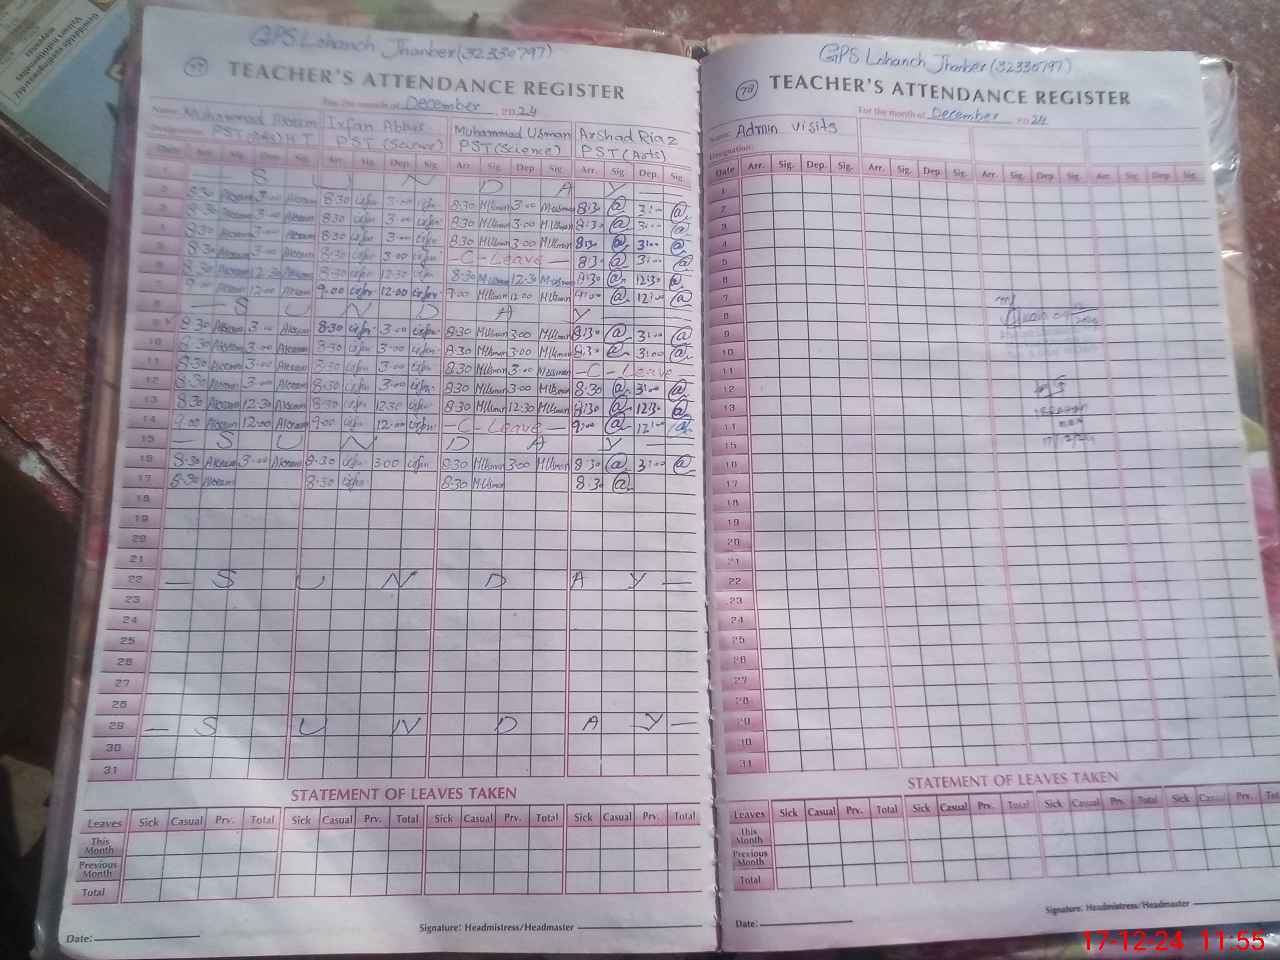 GPS Lohanch Jhanber (32330797)
TEACHER'S ATTENDANCE REGISTER
For the month of December 2024
Name: Muhammad Akram Irfan Abbas Muhammad Usman Arshad Riaz
Designation: PST (Sci) PST (Science) PST (Arts)
Date Arr. Sig. Dep. Sig. Arr. Sig. Dep. Sig. Arr. Sig. Dep. Sig. Arr. Sig. Dep. Sig.
1 — S U N D A Y —
2 8:30 Akram 3:00 Akram 8:30 Irfan 3:00 Irfan 8:30 MUsman 3:00 MUsman 8:30 @ 3:00 @
3 8:30 Akram 3:00 Akram 8:30 Irfan 3:00 Irfan 8:30 MUsman 3:00 MUsman 8:30 @ 3:00 @
4 8:30 Akram 3:00 Akram 8:30 Irfan 3:00 Irfan 8:30 MUsman 3:00 MUsman 8:30 @ 3:00 @
5 8:30 Akram 3:00 Akram 8:30 Irfan 3:00 Irfan — C - Leave — 8:30 @ 3:00 @
6 8:30 Akram 12:30 Akram 8:30 Irfan 12:30 Irfan 8:30 MUsman 12:30 MUsman 8:30 @ 12:30 @
7 9:00 Akram 12:00 Akram 9:00 Irfan 12:00 Irfan 9:00 MUsman 12:00 MUsman 9:00 @ 12:00 @
8 — S U N D A Y —
9 8:30 Akram 3:00 Akram 8:30 Irfan 3:00 Irfan 8:30 MUsman 3:00 MUsman 8:30 @ 3:00 @
10 8:30 Akram 3:00 Akram 8:30 Irfan 3:00 Irfan 8:30 MUsman 3:00 MUsman 8:30 @ 3:00 @
11 8:30 Akram 3:00 Akram 8:30 Irfan 3:00 Irfan 8:30 MUsman 3:00 MUsman — C - Leave —
12 8:30 Akram 3:00 Akram 8:30 Irfan 3:00 Irfan 8:30 MUsman 3:00 MUsman 8:30 @ 3:00 @
13 8:30 Akram 12:30 Akram 8:30 Irfan 12:30 Irfan 8:30 MUsman 12:30 MUsman 8:30 @ 12:30 @
14 9:00 Akram 12:00 Akram 9:00 Irfan 12:00 Irfan — C - Leave — 9:00 @ 12:00 @
15 — S U N D A Y —
16 8:30 Akram 3:00 Akram 8:30 Irfan 3:00 Irfan 8:30 MUsman 3:00 MUsman 8:30 @ 3:00 @
17 8:30 Akram 8:30 Irfan 8:30 MUsman 8:30 @
18
19
20
21
22 — S U N D A Y —
23
24
25
26
27
28
29 — S U N D A Y —
30
31
STATEMENT OF LEAVES TAKEN
Leaves Sick Casual Prv. Total Sick Casual Prv. Total Sick Casual Prv. Total Sick Casual Prv. Total
This Month
Previous Month
Total
Signature: Headmistress/Headmaster
Date:
GPS Lohanch Jhanber (32330797)
78 TEACHER'S ATTENDANCE REGISTER
For the month of December 2024
Name: Admin visits
Designation:
Date Arr. Sig. Dep. Sig. Arr. Sig. Dep. Sig. Arr. Sig. Dep. Sig. Arr. Sig. Dep. Sig.
1
2
3
4
5
6
7
8
9
10
11
12
13
14
15
16
17
18
19
20
21
22
23
24
25
26
27
28
29
30
31
STATEMENT OF LEAVES TAKEN
Leaves Sick Casual Prv. Total Sick Casual Prv. Total Sick Casual Prv. Total Sick Casual Prv. Total
This Month
Previous Month
Total
Signature: Headmistress/Headmaster
Date:
17-12-24 11:55